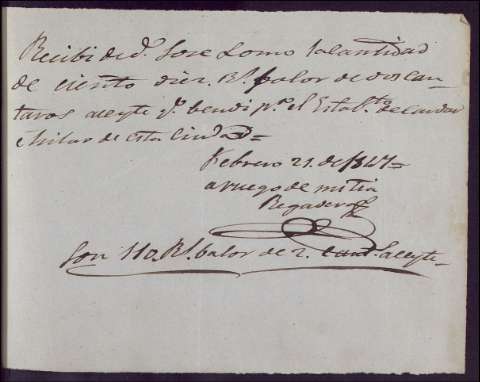 Recibi de d.n Jose Lomo la cantidad
de ciento diez. R.s balor de dos can-
taros aceyte q.e bendi p.a el Estab.to de cardar
e hilar de esta Ciudad=
Febrero 21. de 1847=
a ruego de mi tia
Regadera
Son 110. R.s balor de 2. cant.s aceyte-